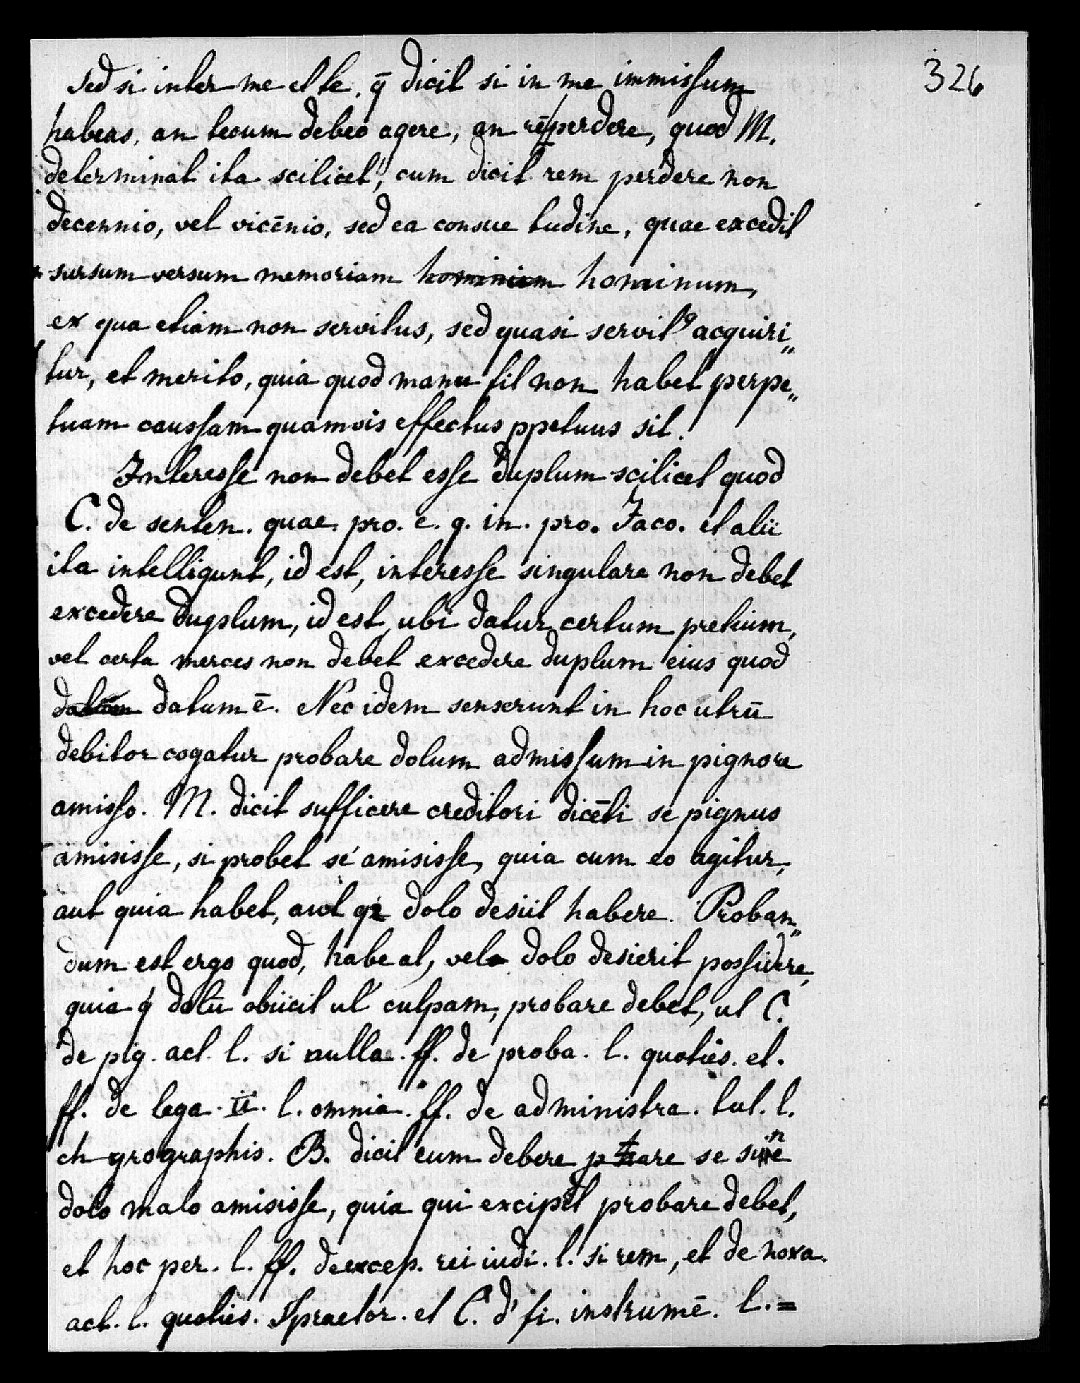 326
sed si inter me et te. q̄ dicit si in me immissum
habeas, an tecum debeo agere, an rē perdere, quod M.
determinat ita scilicet, cum dicit rem perdere non
decennio, vel vicēnio, sed ea consue tudine, quae excedit
sursum versum memoriam hominiem hominum,
ex qua etiam non servitus, sed quasi servit⁹ acquiri„
tur, et merito, quia quod manu fit non habet perpe„
tuam caussam quamvis effectus ppetuus sit.
Interesse non debet esse duplum scilicet quod
C. de senten. quae. pro. e. q. in. pro. Jaco. et alii
ita intelligunt, id est, interesse singulare non debet
excedere duplum, id est, ubi datur certum pretium,
vel certa merces non debet excedere duplum eius quod
datum datum ē. Nec idem senserunt in hoc utrū
debitor cogatur probare dolum admissum in pignore
amisso. M. dicit sufficere creditori dicēti se pignus
amisisse, si probet se amisisse, quia cum eo agitur,
aut quia habet, aut qz dolo desiit habere. Proban„
dum est ergo quod, habeat, vel dolo desierit possidere,
quia q dolū obiicit ut culpam, probare debet, ut C.
de pig. act. l. si nulla. ff. de proba. l. quoties. et.
ff. de lega. II. l. omnia. ff. de administra. tut. l.
ch yrographis. B. dicit eum debere pbare se sine
dolo malo amisisse, quia qui excipit probare debet,
et hoc per. l. ff. de excep. rei iudi. l. si rem, et de noxa.
act. l. quoties. § praetor. et C. d' fi. instrumē. l. =